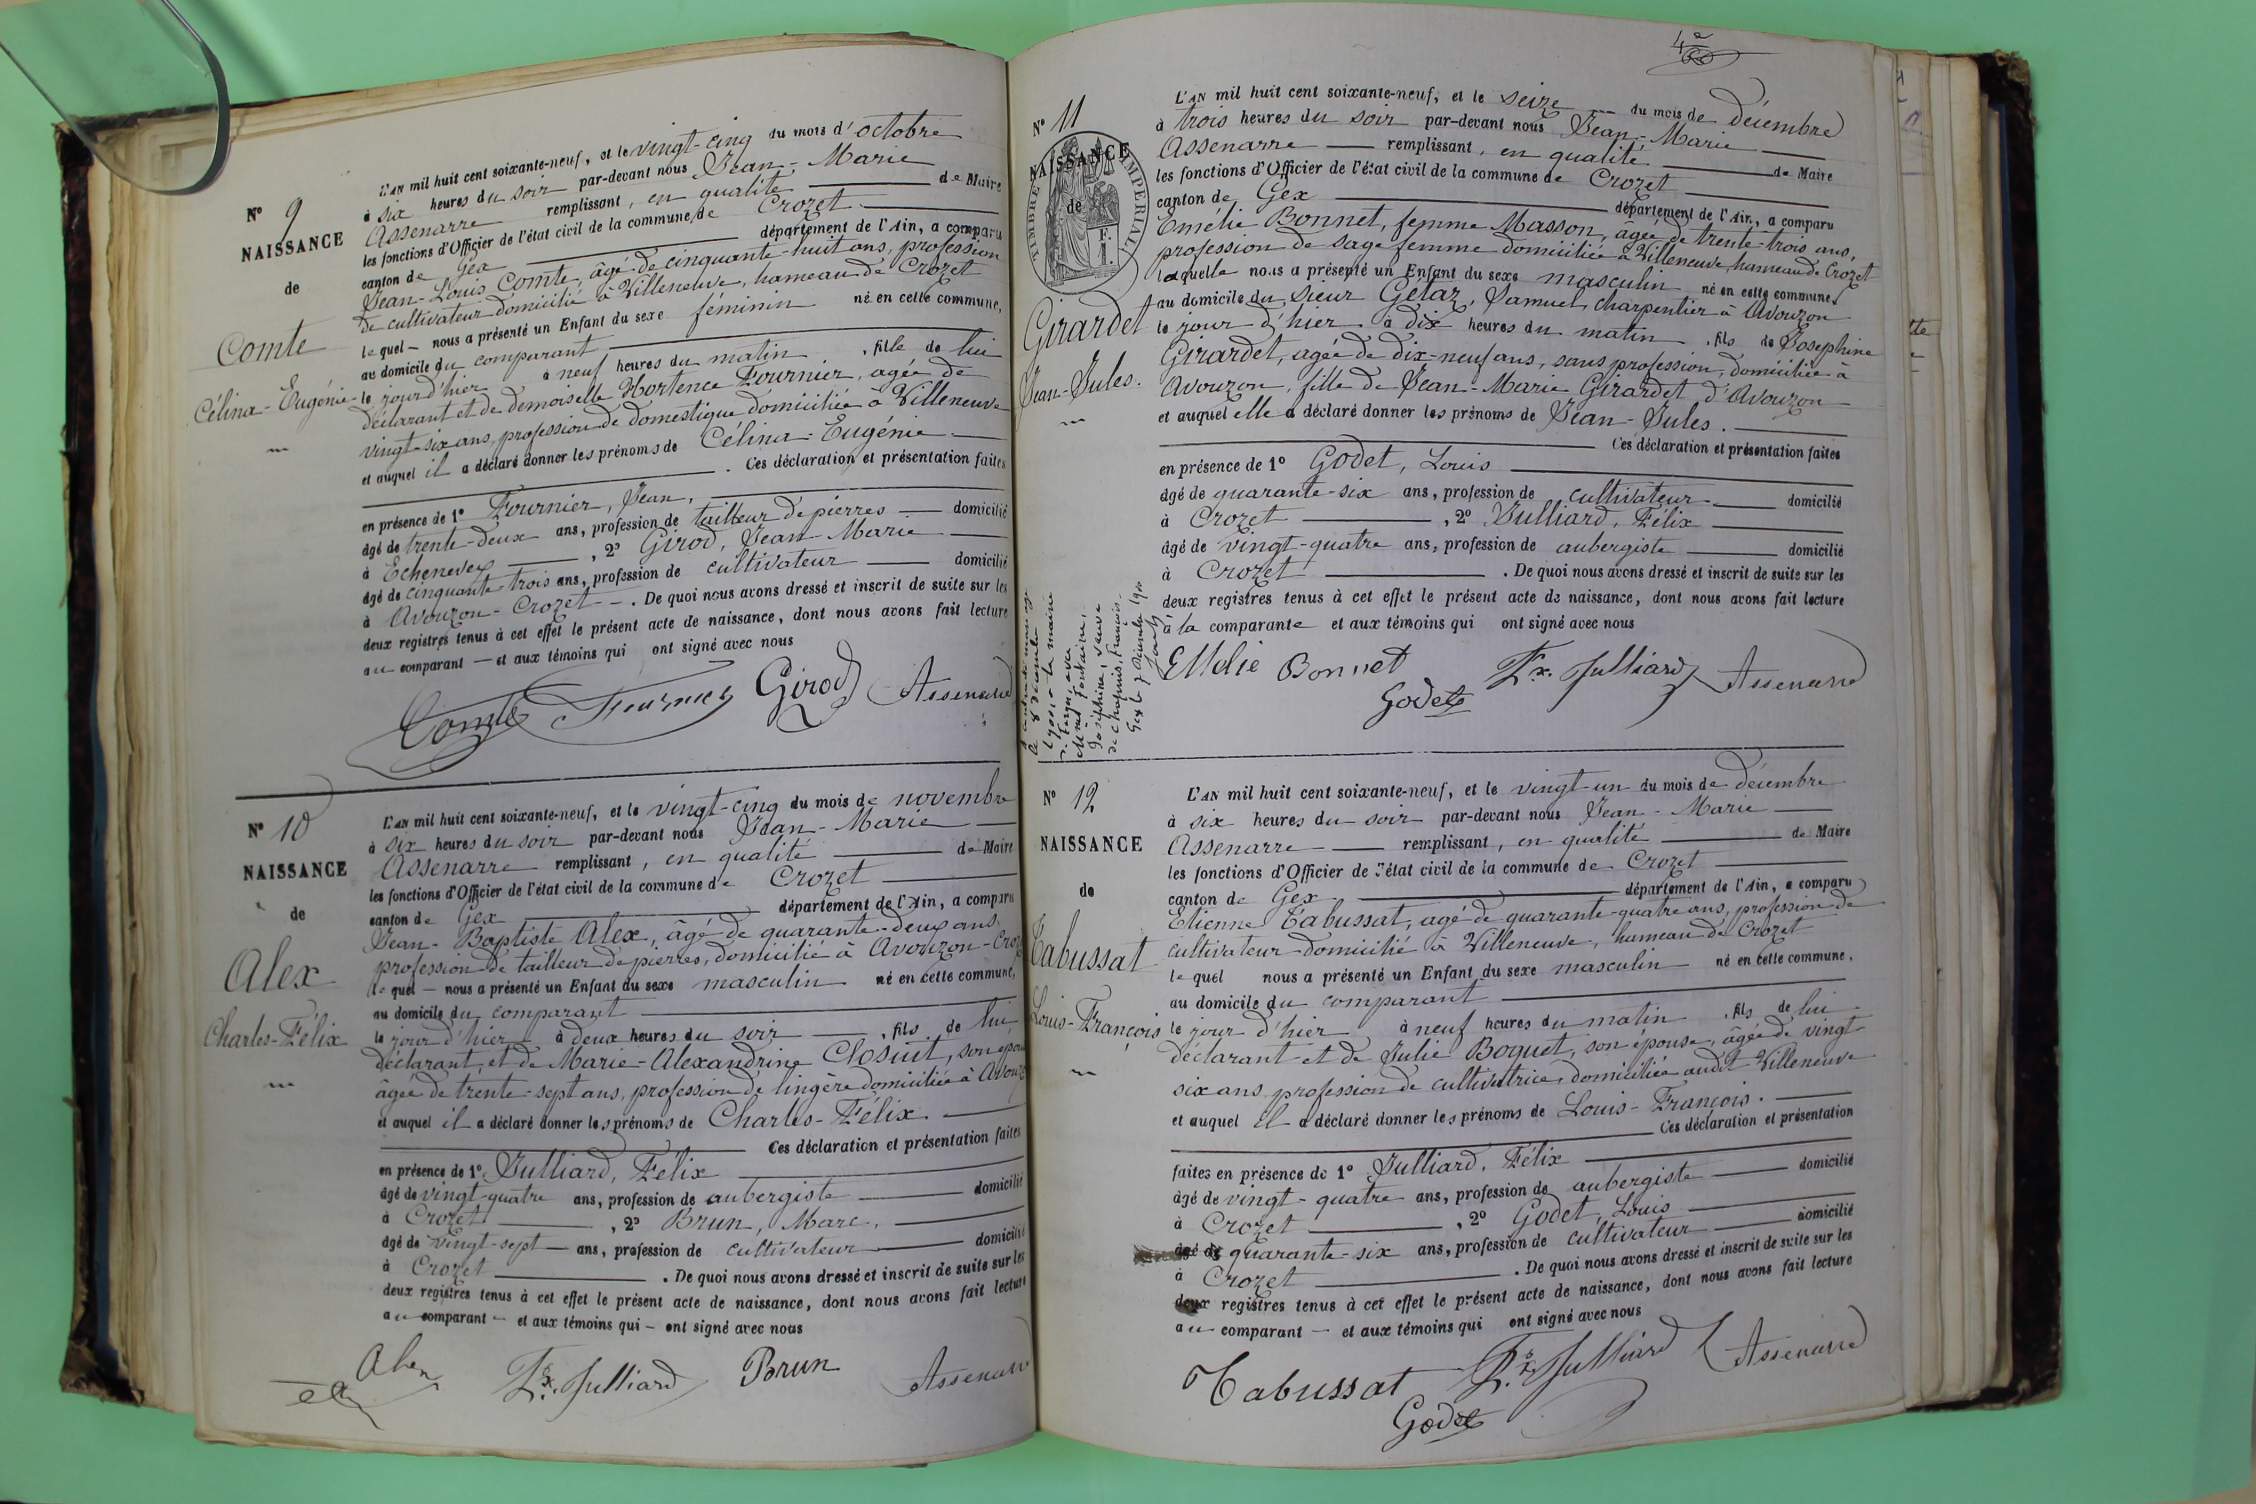 N° 9
NAISSANCE
de
Comte
Célina-Eugénie
L'AN mil huit cent soixante-neuf, et le vingt-cinq du mois d'octobre
à six heures du soir par-devant nous Jean-Marie
Assenarre remplissant, en qualité de Maire
les fonctions d'Officier de l'état civil de la commune de Crozet
canton de Gex département de l'Ain, a comparu
Jean-Louis Comte, âgé de cinquante-huit ans, profession
de cultivateur domicilié à Villeneuve, hameau de Crozet
lequel nous a présenté un Enfant du sexe féminin né en cette commune,
au domicile du comparant
le jour d'hier à neuf heures du matin, fille de lui
déclarant et de demoiselle Hortence Fournier, agée de
vingt-six ans, profession de domestique domiciliée à Villeneuve
et auquel il a déclaré donner les prénoms de Célina-Eugénie
. Ces déclaration et présentation faites
en présence de 1° Fournier, Jean,
âgé de trente-deux ans, profession de tailleur de pierres domicilié
à Echenevex, 2° Girod, Jean-Marie
âgé de cinquante trois ans, profession de cultivateur domicilié
à Avouzon-Crozet. De quoi nous avons dressé et inscrit de suite sur les
deux registres tenus à cet effet le présent acte de naissance, dont nous avons fait lecture
au comparant et aux témoins qui ont signé avec nous
Comte Fournier Girod Assenarre
N° 10
NAISSANCE
de
Alex
Charles-Félix
L'AN mil huit cent soixante-neuf, et le vingt-cinq du mois de novembre
à six heures du soir par-devant nous Jean-Marie
Assenarre remplissant, en qualité de Maire
les fonctions d'Officier de l'état civil de la commune de Crozet
canton de Gex département de l'Ain, a comparu
Jean-Baptiste Alex, âgé de quarante-deux ans,
profession de tailleur de pierres, domicilié à Avouzon-Croz
lequel nous a présenté un Enfant du sexe masculin né en cette commune,
au domicile du comparant
le jour d'hier à deux heures du soir, fils de lui
déclarant, et de Marie-Alexandrine Closuit, son épou
âgée de trente-sept ans, profession de lingère domiciliée à Avouz
et auquel il a déclaré donner les prénoms de Charles-Félix.
Ces déclaration et présentation faites
en présence de 1° Julliard, Félix
âgé de vingt-quatre ans, profession de aubergiste domicilié
à Crozet, 2° Brun, Marc,
âgé de vingt-sept ans, profession de cultivateur domicilié
à Crozet. De quoi nous avons dressé et inscrit de suite sur les
deux registres tenus à cet effet le présent acte de naissance, dont nous avons fait lecture
au comparant et aux témoins qui ont signé avec nous
Alex Fx. Julliard Brun Assenarre
4e
N° 11
NAISSANCE
de
TIMBRE IMPÉRIAL
F.
Girardet
Jean-Jules.
le 8 décembre
Joséphine, veuve
de Chapuis, François.
Gex le 9 décembre 19
L'AN mil huit cent soixante-neuf, et le seize du mois de décembre
à trois heures du soir par-devant nous Jean-Marie
Assenarre remplissant, en qualité de Maire
les fonctions d'Officier de l'état civil de la commune de Crozet
canton de Gex département de l'Ain, a comparu
Emélie Bonnet, femme Masson, âgée de trente-trois ans,
profession de sage femme domiciliée à Villeneuve, hameau de Crozet
laquelle nous a présenté un Enfant du sexe masculin né en cette commune,
au domicile du sieur Gélaz, Samuel, charpentier à Avouzon
le jour d'hier à dix heures du matin, fils de Josephine
Girardet, agée de dix-neuf ans, sans profession, domiciliée à
Avouzon, fille de Jean-Marie Girardet d'Avouzon
et auquel elle a déclaré donner les prénoms de Jean-Jules.
Ces déclaration et présentation faites
en présence de 1° Godet, Louis
âgé de quarante-six ans, profession de cultivateur domicilié
à Crozet, 2° Julliard, Félix
âgé de vingt-quatre ans, profession de aubergiste domicilié
à Crozet. De quoi nous avons dressé et inscrit de suite sur les
deux registres tenus à cet effet le présent acte de naissance, dont nous avons fait lecture
à la comparante et aux témoins qui ont signé avec nous
Emelie Bonnet Godet Fx. Julliard Assenarre
N° 12
NAISSANCE
de
Tabussat
Louis-François
L'AN mil huit cent soixante-neuf, et le vingt-un du mois de décembre
à six heures du soir par-devant nous Jean-Marie
Assenarre remplissant, en qualité de Maire
les fonctions d'Officier de l'état civil de la commune de Crozet
canton de Gex département de l'Ain, a comparu
Etienne Tabussat, agé de quarante-quatre ans, profession de
cultivateur domicilié à Villeneuve, hameau de Crozet
lequel nous a présenté un Enfant du sexe masculin né en cette commune,
au domicile du comparant
le jour d'hier à neuf heures du matin, fils de lui
déclarant et de Julie Boquet, son épouse, âgée de vingt-
six ans, profession de cultivatrice, domiciliée audit Villeneuve
et auquel il a déclaré donner les prénoms de Louis-François.
Ces déclaration et présentation
faites en présence de 1° Julliard, Félix
âgé de vingt-quatre ans, profession de aubergiste domicilié
à Crozet, 2° Godet, Louis
âgé de quarante-six ans, profession de cultivateur domicilié
à Crozet. De quoi nous avons dressé et inscrit de suite sur les
deux registres tenus à cet effet le présent acte de naissance, dont nous avons fait lecture
au comparant et aux témoins qui ont signé avec nous
Tabussat Fx. Julliard Assenarre
Godet